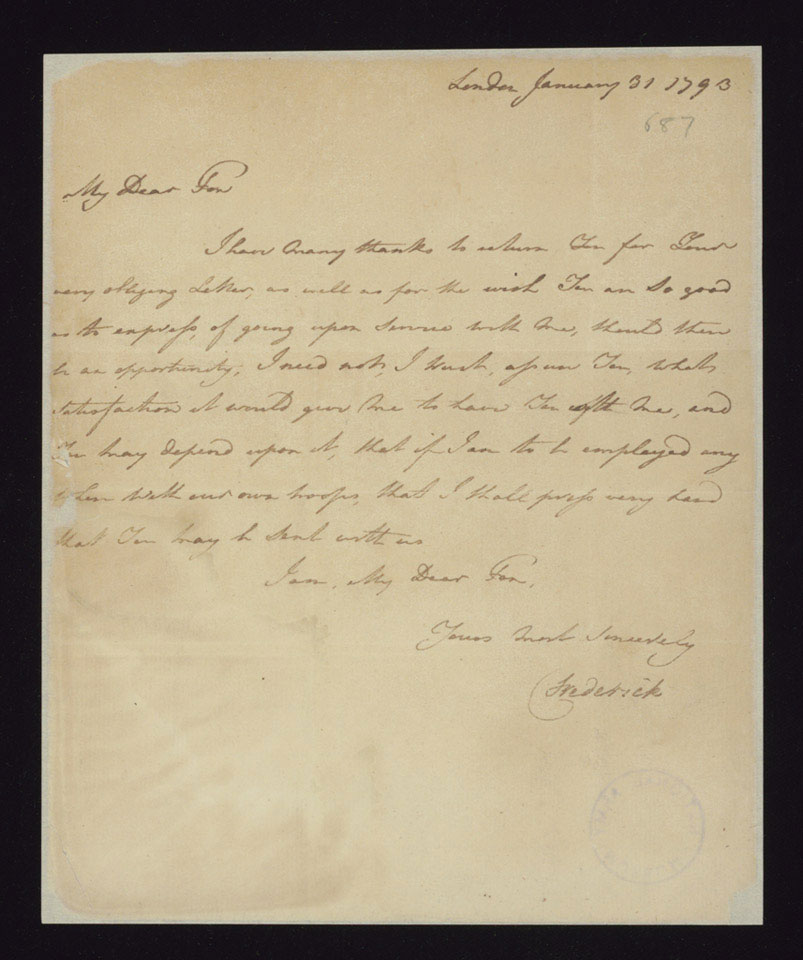 London January 31 1793
687
My Dear Fox
I have many thanks to return You for Your
very obliging Letter, as well as for the wish You are so good
as to express, of going upon Service with Me, should there
be an opportunity; I need not, I trust, assure You, what
satisfaction it would give Me to have You with Me, and
You may depend upon it, that if I am to be employed any
where with our own troops, that I shall press very hard
that You may be sent with us
I am, My Dear Fox,
Yours most Sincerely
Frederick